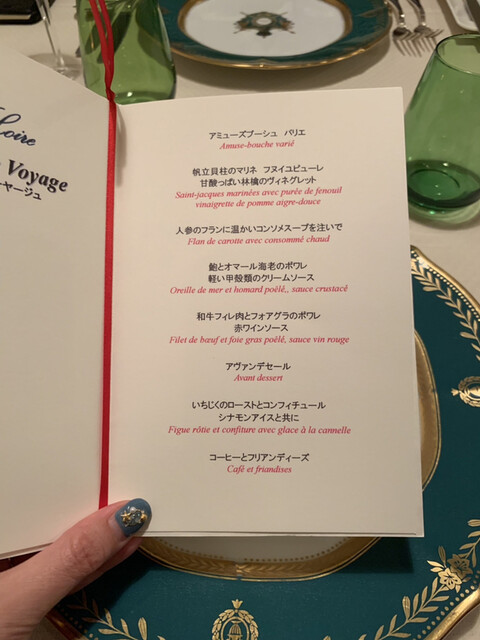 Loire
Voyage
ヤージュ
アミューズブーシュ　バリエ
Amuse-bouche varié
帆立貝柱のマリネ　フヌイユピューレ
甘酸っぱい林檎のヴィネグレット
Saint-jacques marinées avec purée de fenouil
vinaigrette de pomme aigre-douce
人参のフランに温かいコンソメスープを注いで
Flan de carotte avec consommé chaud
鮑とオマール海老のポワレ
軽い甲殻類のクリームソース
Oreille de mer et homard poêlé,, sauce crustacé
和牛フィレ肉とフォアグラのポワレ
赤ワインソース
Filet de bœuf et foie gras poêlé, sauce vin rouge
アヴァンデセール
Avant dessert
いちじくのローストとコンフィチュール
シナモンアイスと共に
Figue rôtie et confiture avec glace à la cannelle
コーヒーとフリアンディーズ
Café et friandises